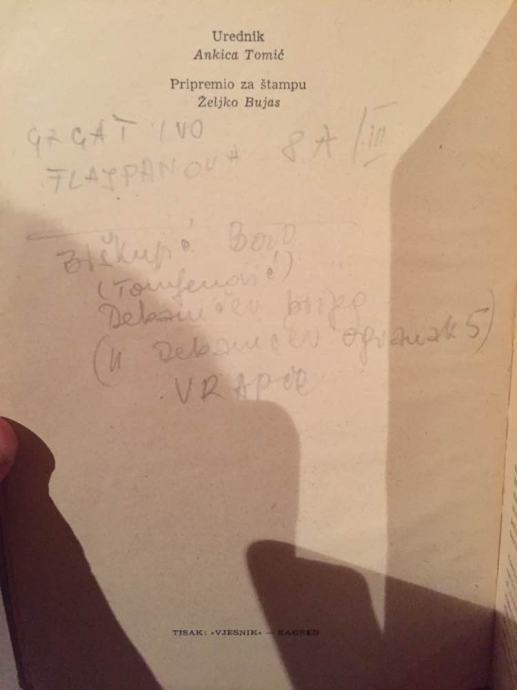 Urednik
Ankica Tomić
Pripremio za štampu
Željko Bujas
GRGAT IVO
FLAJPANOVA 8A/III
Biškupić Boro
(Tomjenović)
Debanićev brijeg
(II Debanićev ogranak 5)
VRAPČE
TISAK: »VJESNIK« — ZAGREB